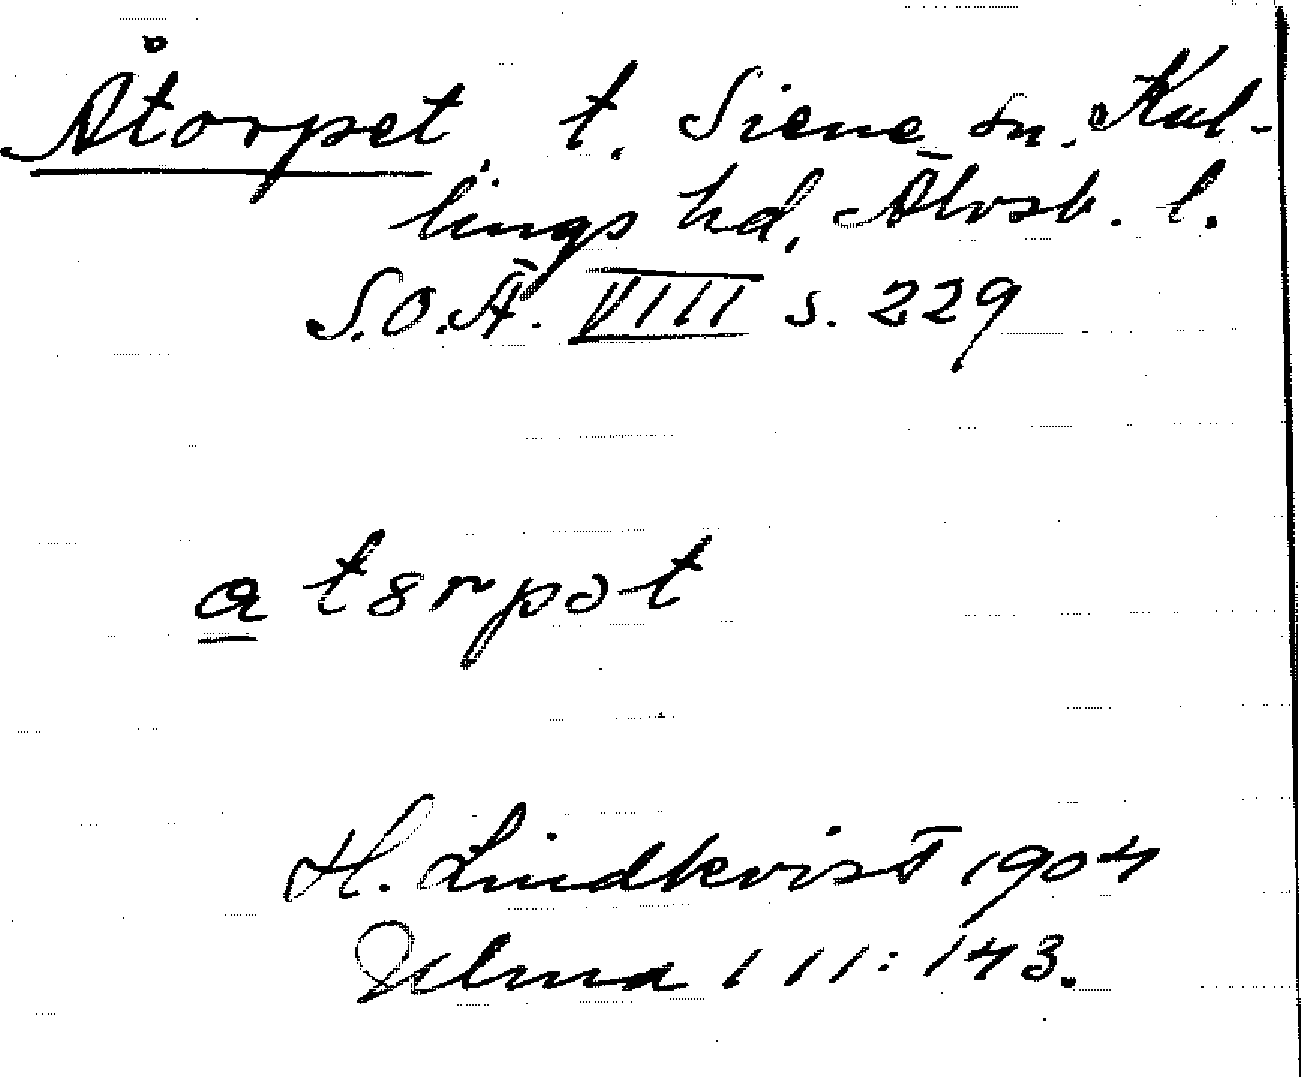 Åtorpet, t. Siene sn. Kul-
lings hd, Älvsb. l.
S.O.Ä. VIII s. 229
a t8rpət
H. Lindkvist 1904
Ulma 111:143.